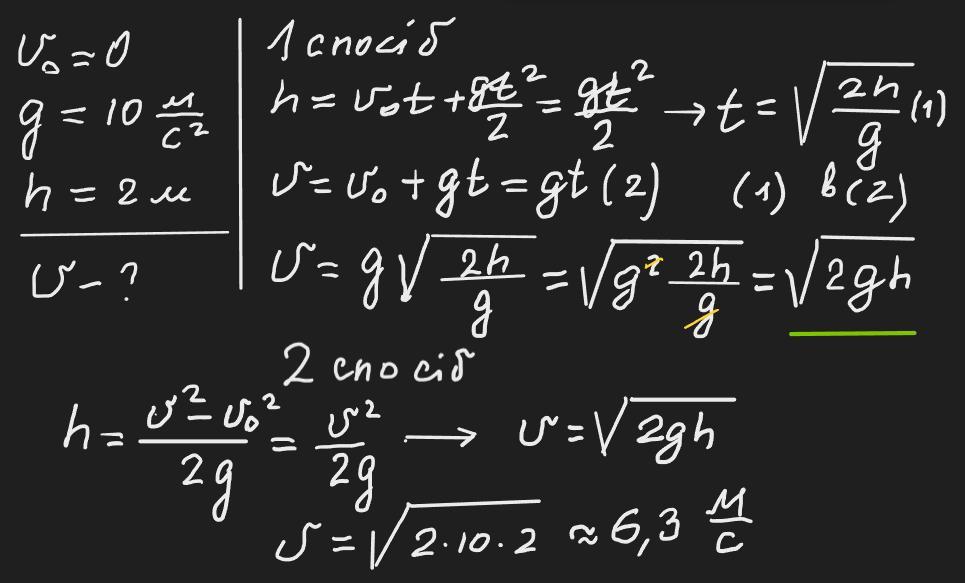 υ₀ = 0
g = 10 м/с²
h = 2 м
υ - ?
1 спосіб
h = υ₀t + gt²/2 = gt²/2 → t = √(2h/g) (1)
υ = υ₀ + gt = gt (2) (1) в (2)
υ = g√(2h/g) = √(g² 2h/g) = √(2gh)
2 спосіб
h = (υ² - υ₀²)/2g = υ²/2g → υ = √(2gh)
υ = √(2·10·2) ≈ 6,3 м/с